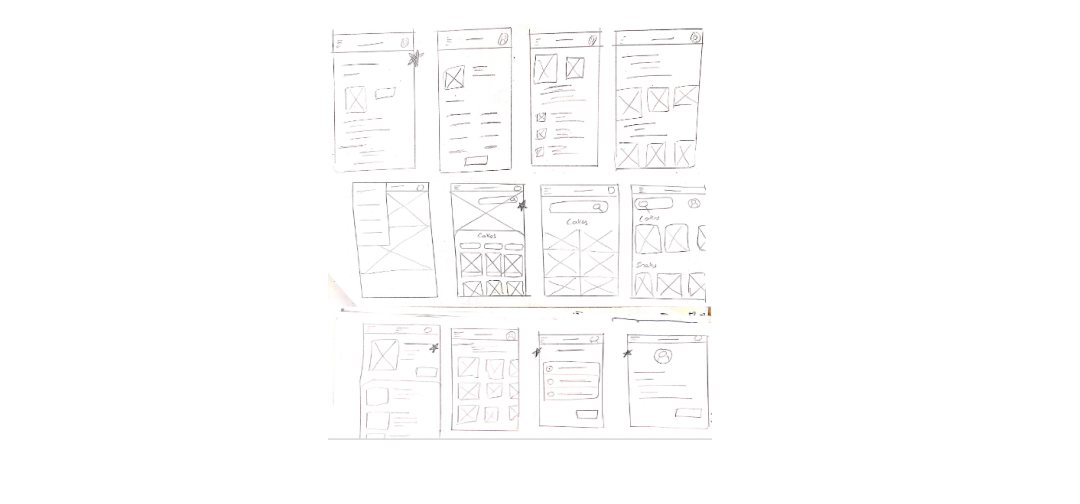 Cakes
Cakes
Cakes
Snaks